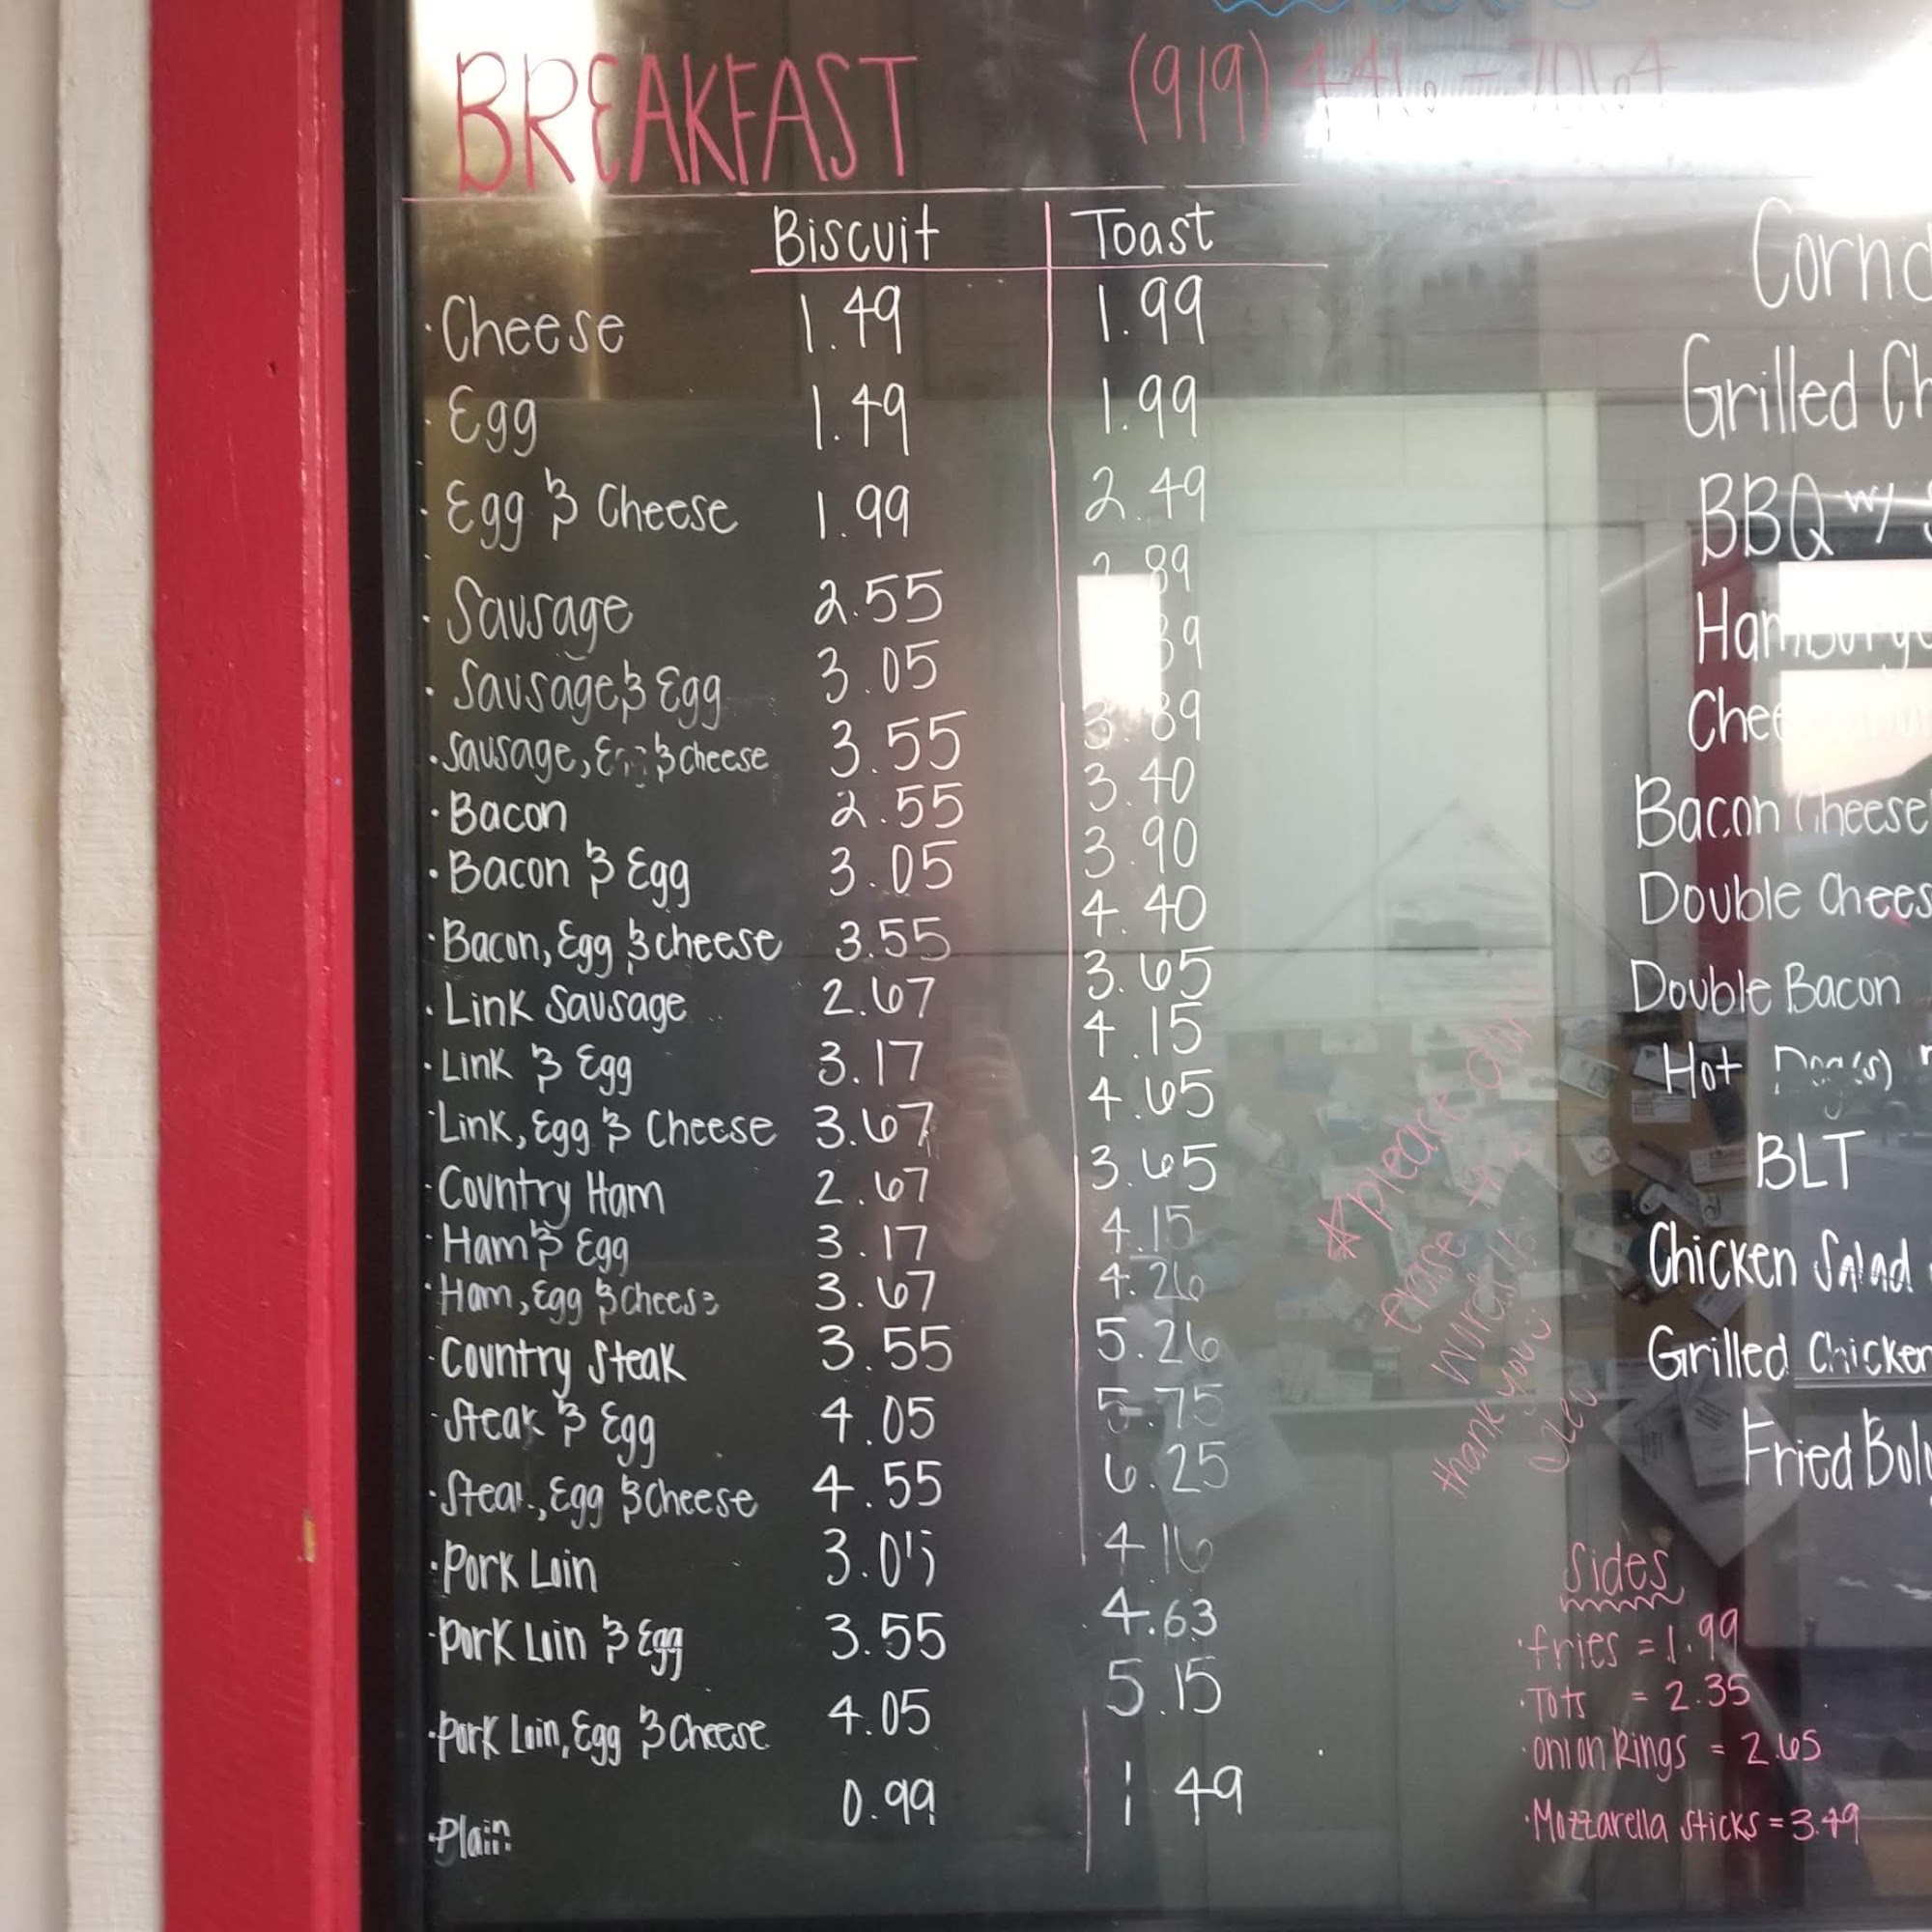 BREAKFAST
(919)
Biscuit Toast
·Cheese 1.49 1.99
·Egg 1.49 1.99
·Egg & Cheese 1.99 2.49
·Sausage 2.55 2.89
·Sausage & Egg 3.05
·Sausage, Egg & cheese 3.55 3.89
·Bacon 2.55 3.40
·Bacon & Egg 3.05 3.90
·Bacon, Egg & cheese 3.55 4.40
·Link Sausage 2.67 3.65
·Link & Egg 3.17 4.15
·Link, Egg & Cheese 3.67 4.65
·Country Ham 2.67 3.65
·Ham & Egg 3.17 4.15
·Ham, Egg & Cheese 3.67 4.26
·Country Steak 3.55 5.26
·Steak & Egg 4.05 5.75
·Steak, Egg & Cheese 4.55 6.25
·Pork Loin 3.05 4.16
·Pork Loin & Egg 3.55 4.63
·Pork Loin, Egg & Cheese 4.05 5.15
·Plain 0.99 1.49
Grilled
BBQ w/
Bacon
Double
Double Bacon
Hot Dog(s)
BLT
Chicken Salad
Grilled
Fried
*please
erase
thank you
Sides
·fries = 1.99
·Tots = 2.35
·onion Rings = 2.65
·Mozzarella Sticks = 3.49